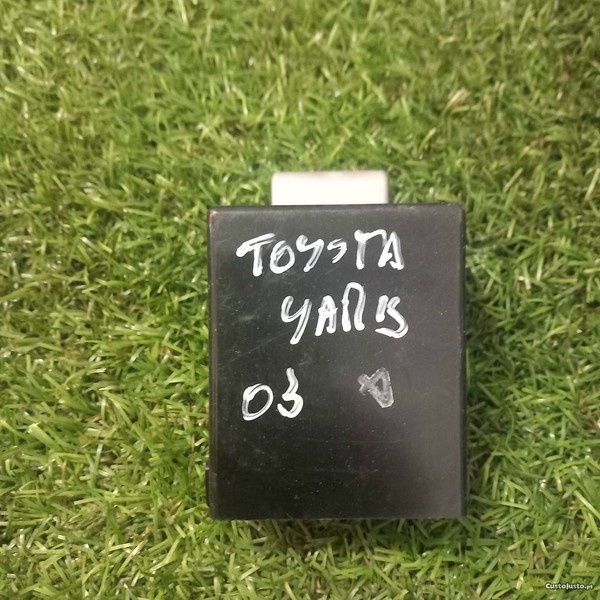 TOYOTA
YARIS
03
CustoJusto.pt